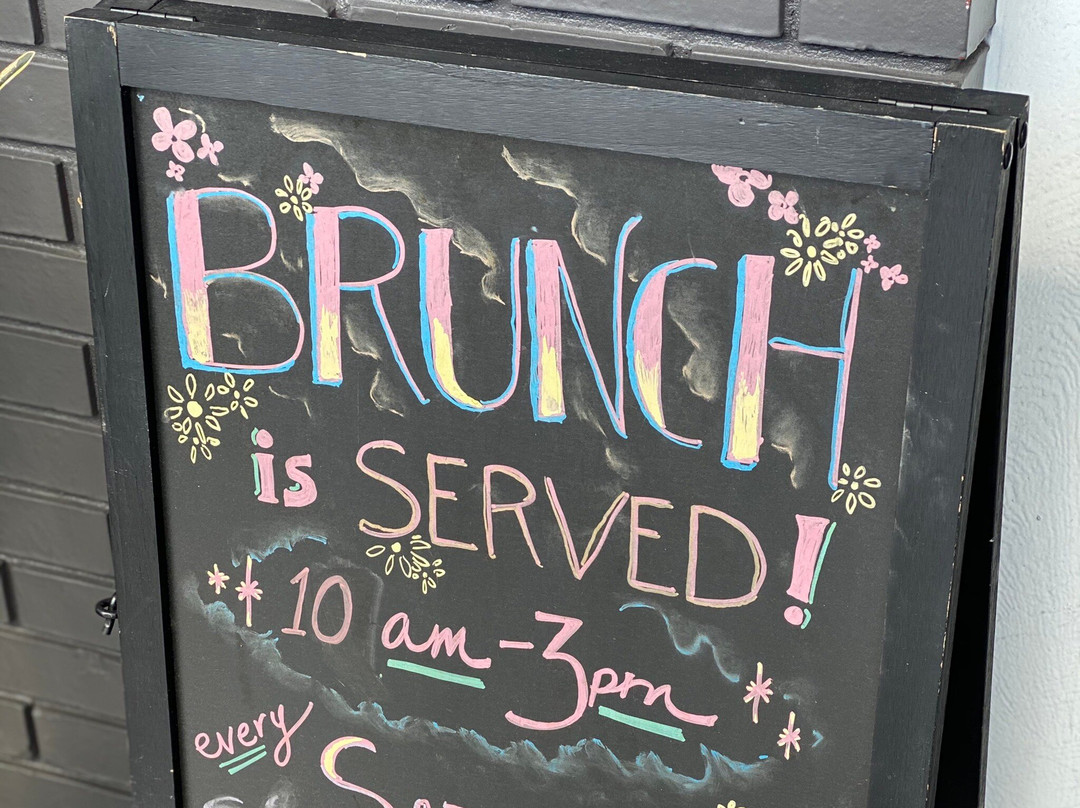 BRUNCH
is SERVED!
10 am - 3pm
every